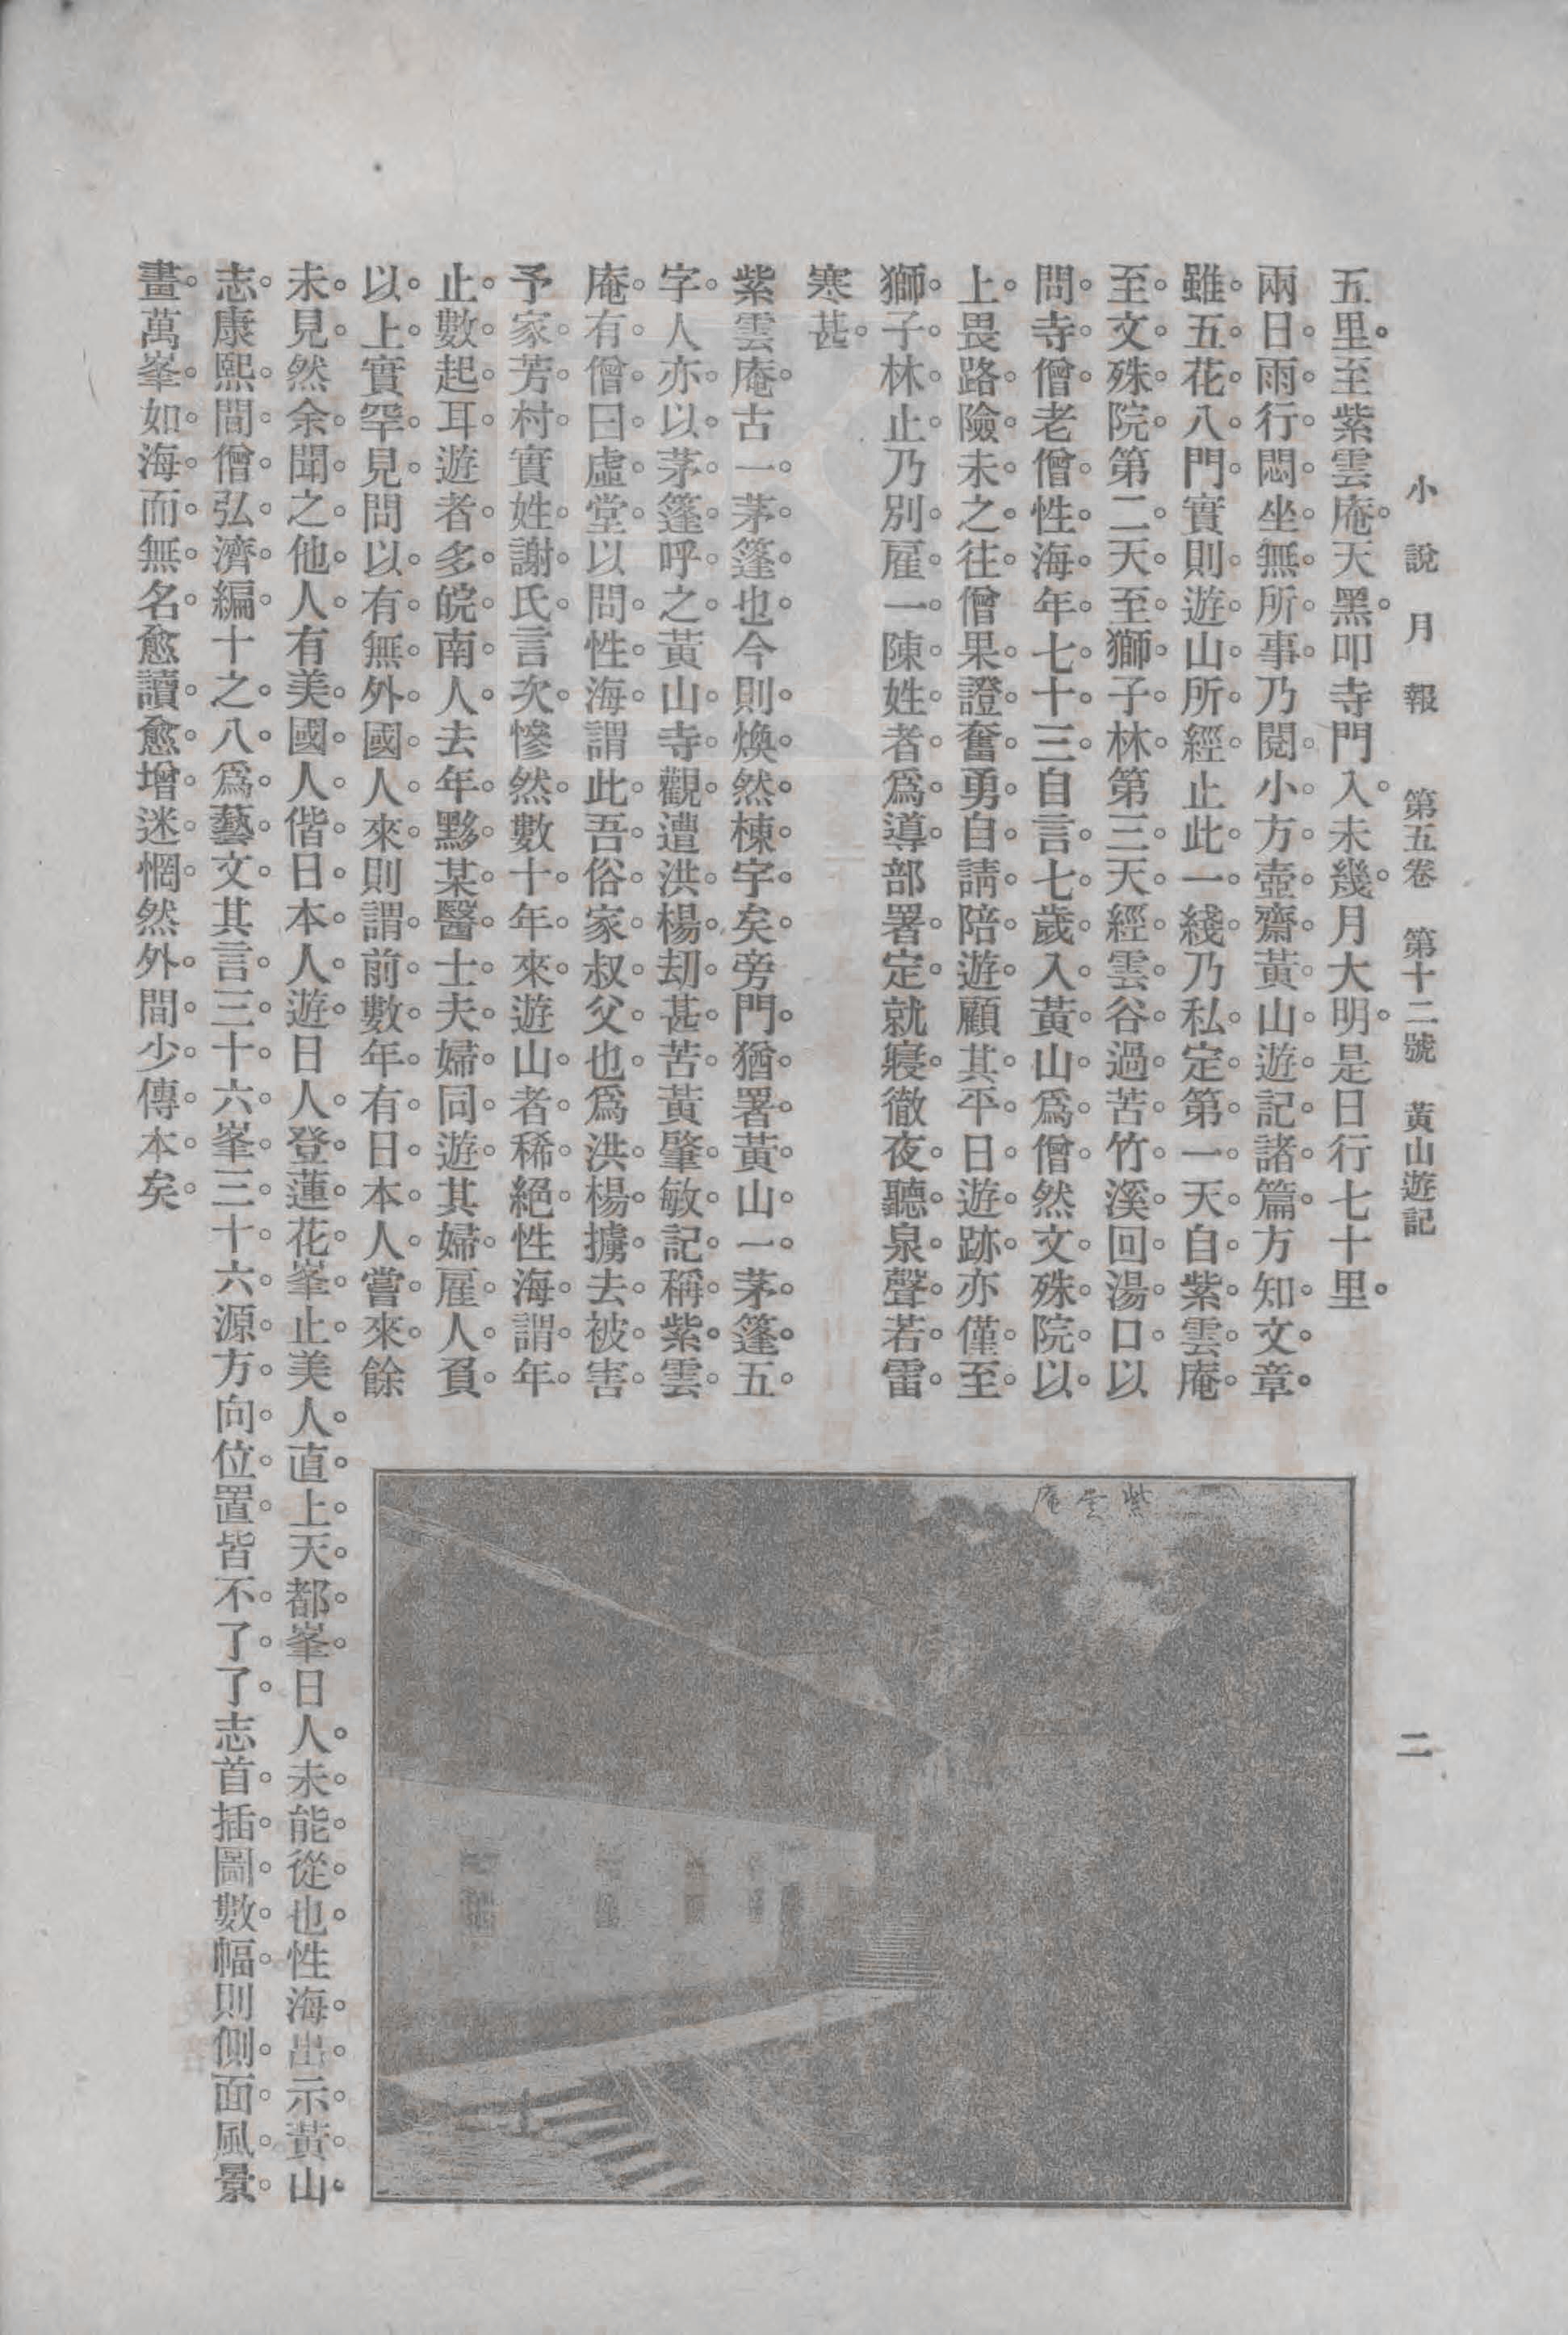 小說月報 第五卷 第十二號 黃山遊記 二
五里。至紫雲庵。天黑。叩寺門入。未幾。月大明。是日行七十里。
兩日雨行悶坐無所事乃閱小方壺齋黃山遊記諸篇方知文章
雖五花八門實則遊山所經止此一綫乃私定第一天自紫雲庵
至文殊院第二天至獅子林第三天經雲谷過苦竹溪回湯口以
問寺僧老僧性海年七十三自言七歲入黃山爲僧然文殊院以
上畏路險未之往僧果證奮勇自請陪遊顧其平日遊跡亦僅至
獅子林止乃別雇一陳姓者爲導部署定就寢徹夜聽泉聲若雷
寒甚。
紫雲庵古一茅篷也今則煥然棟宇矣旁門猶署黃山一茅篷五
字人亦以茅篷呼之黃山寺觀遭洪楊刼甚苦黃肇敏記稱紫雲
庵有僧曰虛堂以問性海謂此吾俗家叔父也爲洪楊擄去被害
予家芳村實姓謝氏言次慘然數十年來遊山者稀絕性海謂年
止數起耳遊者多皖南人去年黟某醫士夫婦同遊其婦雇人負
以上實罕見問以有無外國人來則謂前數年有日本人嘗來餘
未見然余聞之他人有美國人偕日本人遊日人登蓮花峯止美人直上天都峯日人未能從也性海出示黃山
志康熙間僧弘濟編十之八爲藝文其言三十六峯三十六源方向位置皆不了了志首插圖數幅則側面風景
畫萬峯如海而無名愈讀愈增迷惘然外間少傳本矣
紫雲庵